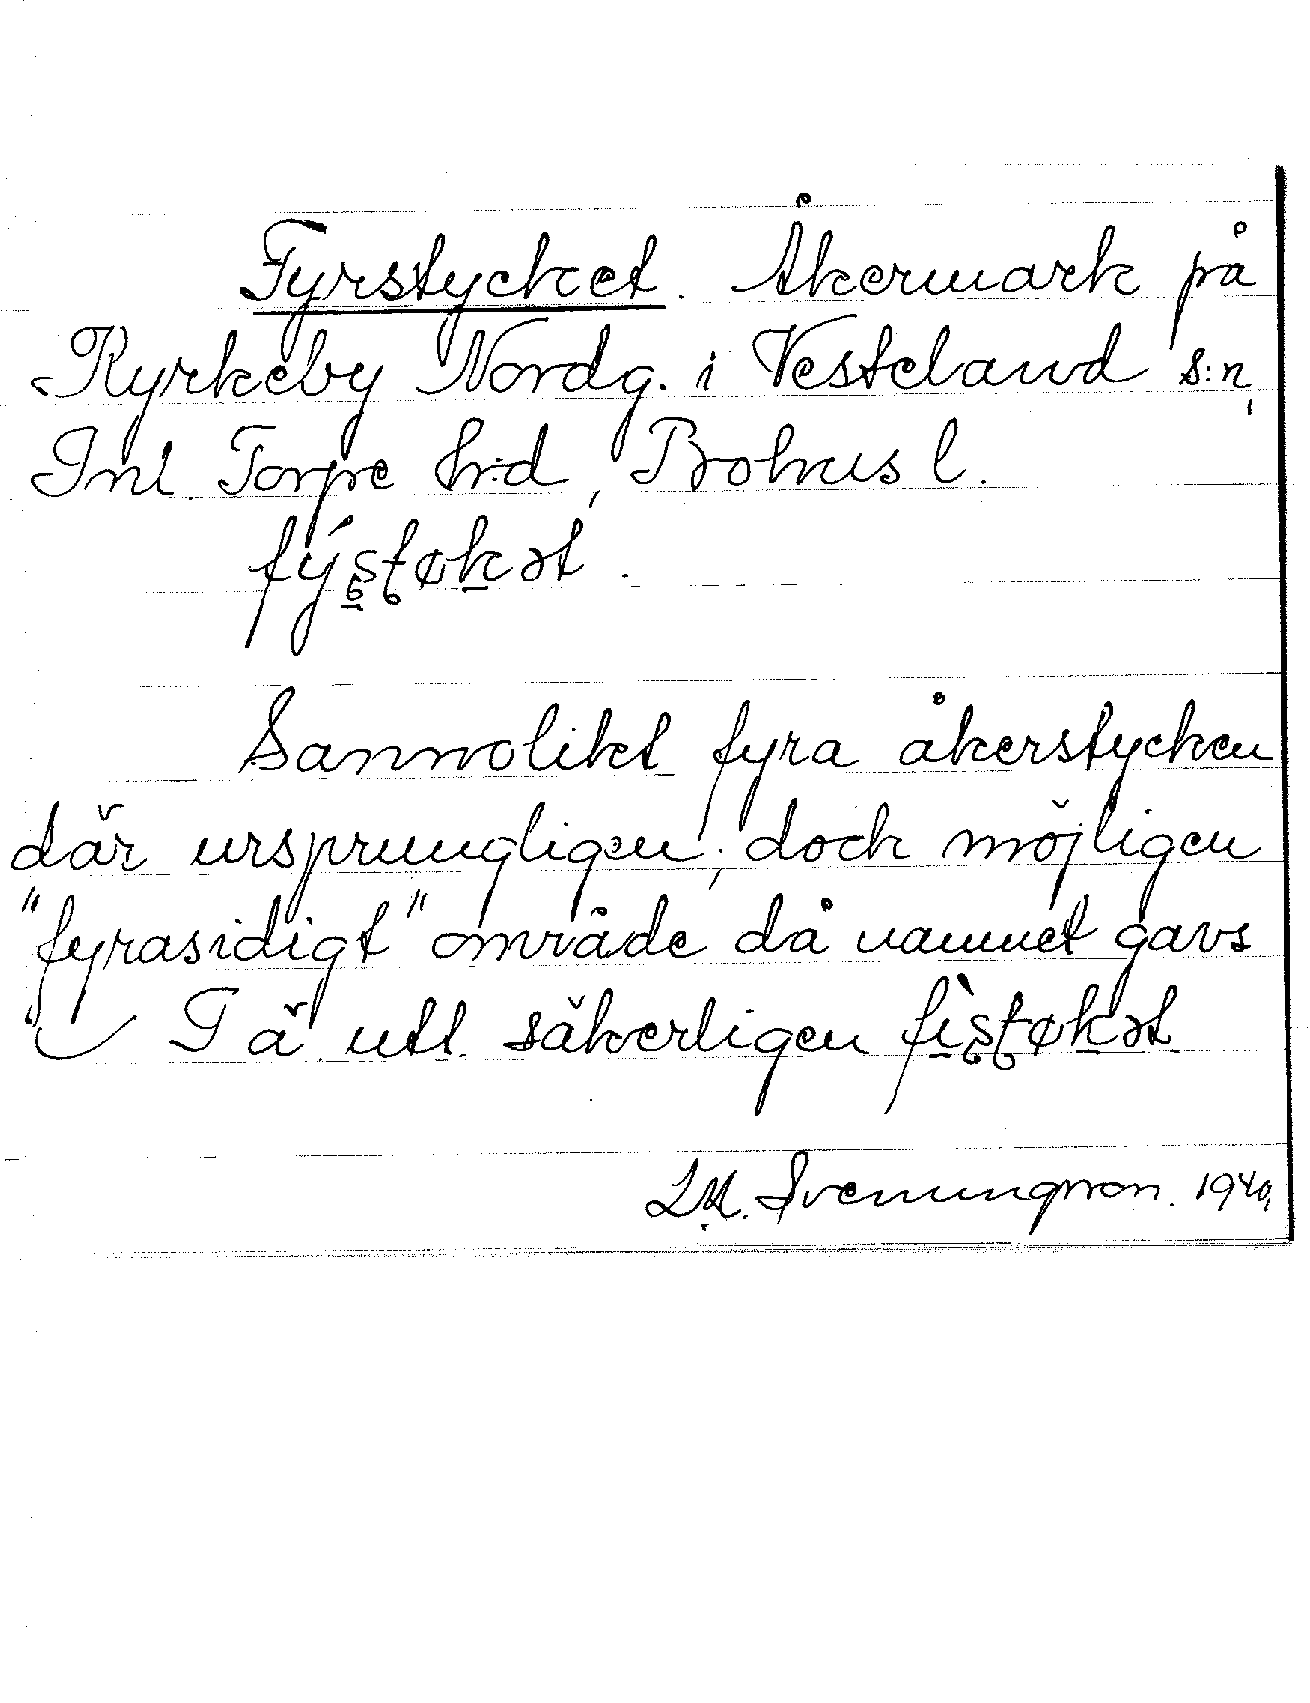 Fyrstycket. Åkermark på
Kyrkeby Nordg. i Västerland s:n,
Inl. Torpe h:d, Bohus l.
fýʂʈøkət.
Sannolikt fyra åkerstycken
där ursprungligen; dock möjligen
"fyrasidigt" område då namnet gavs
Tä utt. säkerligen fìʂʈøkət
L.M. Svenungsson. 1940.